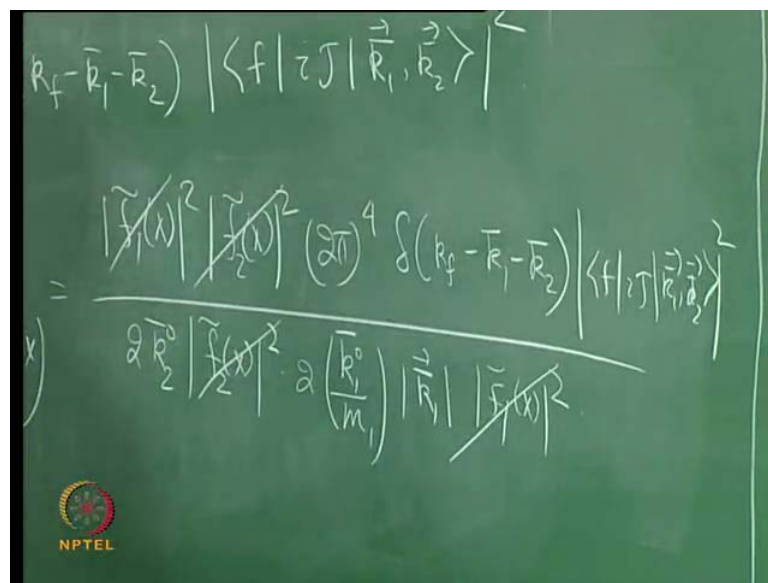 k_f - k̄_1 - k̄_2) |⟨f| i J |k⃗_1, k⃗_2⟩|^2
x) = |f̃_1(x)|^2 |f̃_2(x)|^2 (2π)^4 δ(k_f - k̄_1 - k̄_2) |⟨f| i J |k⃗_1, k⃗_2⟩|^2
2 k̄_2^0 |f̃_2(x)|^2 · 2 (k̄_1^0 / m_1) |k⃗_1| |f̃_1(x)|^2
NPTEL